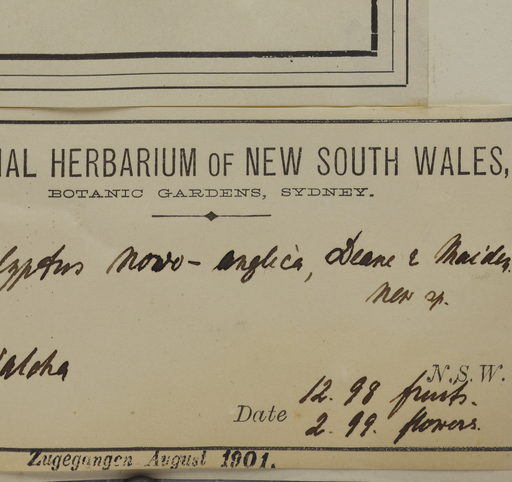 NAL HERBARIUM OF NEW SOUTH WALES,
BOTANIC GARDENS, SYDNEY.
lyptus novo-anglica, Deane & Maiden
new sp.
Walcha
N.S.W.
12.98 fruits.
Date 2.99. flowers.
Zugegangen August 1901.